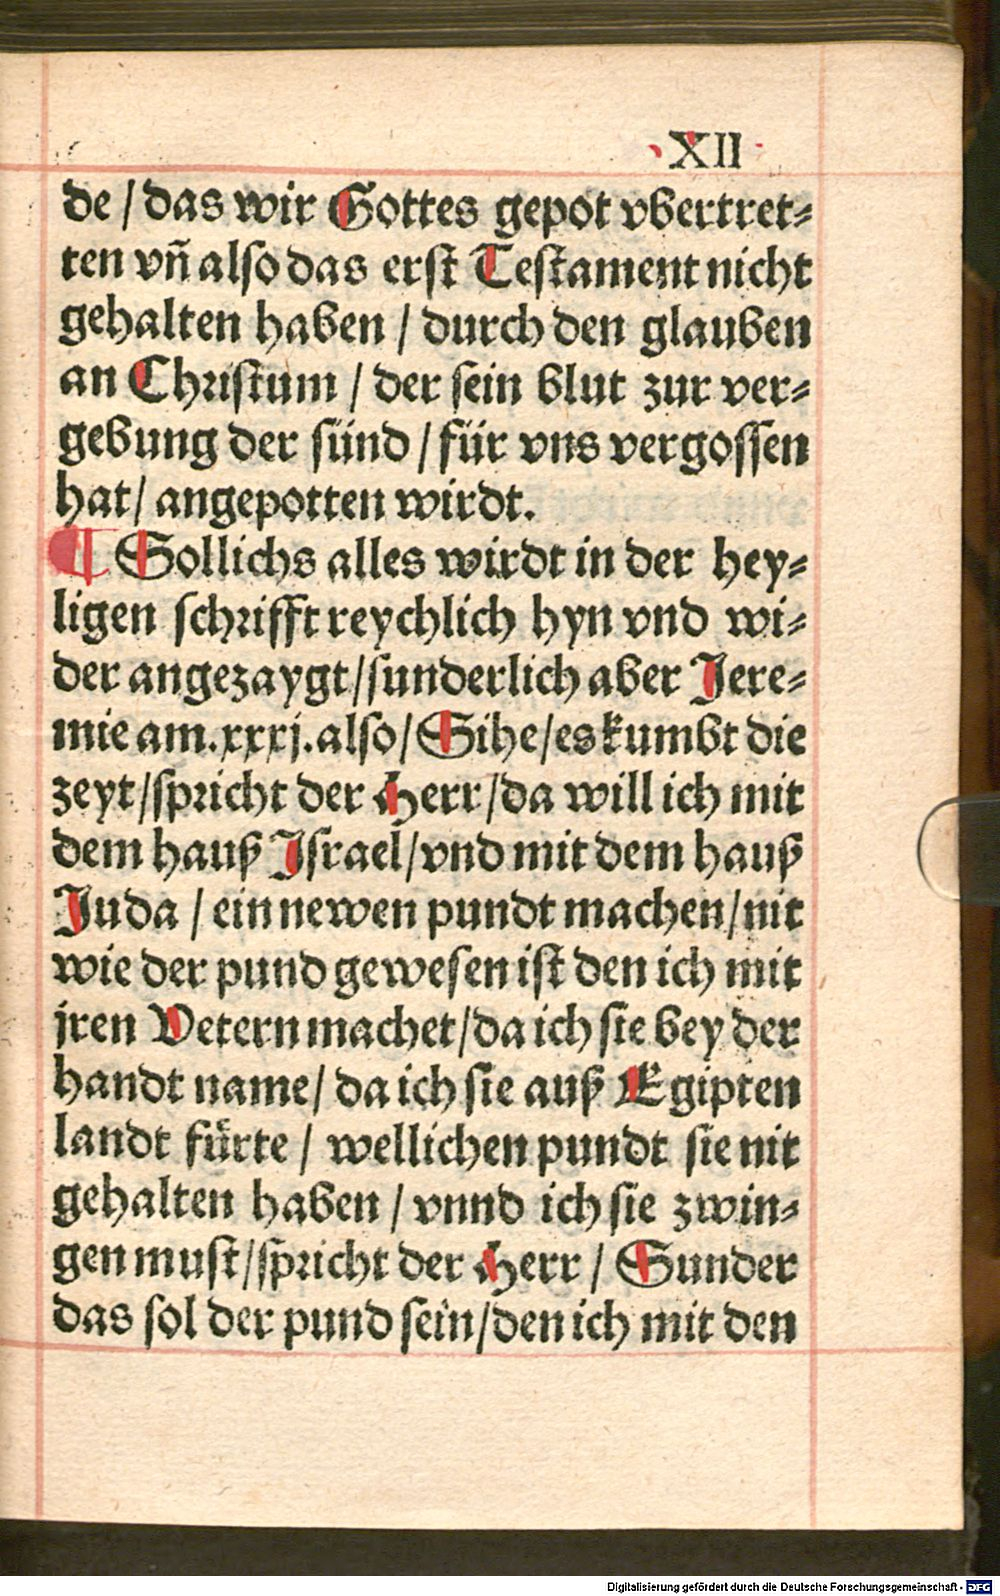 XII
de / das wir Gottes gepot vbertret⸗
ten vn̄ also das erst Testament nicht
gehalten haben / durch den glauben
an Christum / der sein blut zur ver⸗
gebung der sünd / für vns vergossen
hat / angepotten wirdt.
¶ Sollichs alles wirdt in der hey⸗
ligen schrifft reychlich hyn vnd wi⸗
der angezaygt / sunderlich aber Jere⸗
mie am .xxxj. also / Sihe / es kumbt die
zeyt / spricht der Herr / da will ich mit
dem hauß Israel / vnd mit dem hauß
Juda / ein newen pundt machen / nit
wie der pund gewesen ist den ich mit
jren Vetern machet / da ich sie bey der
handt name / da ich sie auß Egipten
landt fürte / wellichen pundt sie nit
gehalten haben / vnnd ich sie zwin⸗
gen must / spricht der Herr / Sunder
das sol der pund sein / den ich mit den
Digitalisierung gefördert durch die Deutsche Forschungsgemeinschaft - DFG